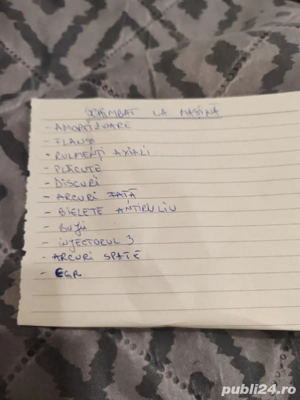 SCHIMBAT LA MAȘINĂ
- AMORTIZOARE
- FLANȘE
- RULMENȚI AXIALI
- PLĂCUTE
- DISCURI
- ARCURI FAȚĂ
- BIELETE ANTIRULIU
- BUJII
- INJECTORUL 3
- ARCURI SPATE
- EGR
publi24.ro